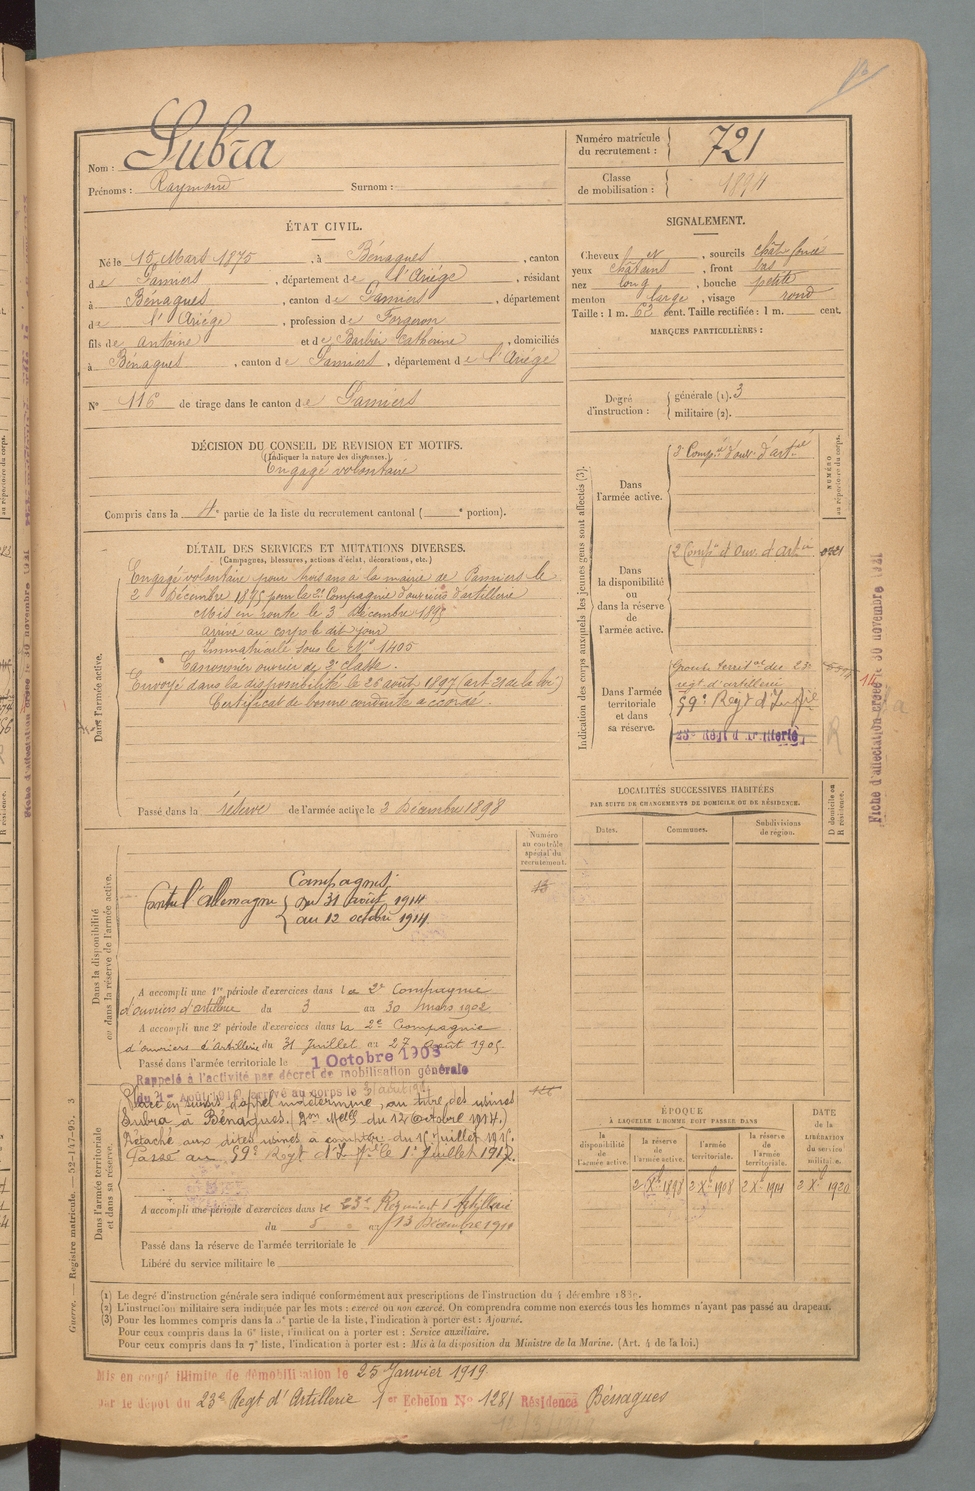 Nom : Subra
Prénoms : Raymond Surnom :
Numéro matricule du recrutement : 721
Classe de mobilisation : 1894
ÉTAT CIVIL.
Né le 15 Mars 1875, à Bénagues, canton
de Pamiers, département de l'Ariége, résidant
à Bénagues, canton de Pamiers, département
de l'Ariége, profession de Forgeron
fils de Antoine et de Barbier Catherine, domiciliés
à Bénagues, canton de Pamiers, département de l'Ariége
N° 116 de tirage dans le canton de Pamiers
SIGNALEMENT.
Cheveux et, sourcils chât foncé
yeux châtains, front bas
nez long, bouche petite
menton large, visage rond
Taille : 1 m. 62 cent. Taille rectifiée : 1 m. cent.
MARQUES PARTICULIÈRES :
Degré d'instruction : générale (1). 3
militaire (2).
DÉCISION DU CONSEIL DE REVISION ET MOTIFS.
(Indiquer la nature des dispenses.)
Engagé volontaire
Compris dans la 4e partie de la liste du recrutement cantonal ( e portion).
DÉTAIL DES SERVICES ET MUTATIONS DIVERSES.
(Campagnes, blessures, actions d'éclat, décorations, etc.)
Dans l'armée active.
Engagé volontaire pour trois ans à la mairie de Pamiers le
2 Décembre 1895 pour la 2e Compagnie d'ouvriers d'artillerie
Mis en route le 3 Décembre 1895
arrivé au corps le dit jour
Immatriculé sous le N° 1405
Canonnier ouvrier de 2e classe.
Envoyé dans la disponibilité le 26 août 1897 (art. 21 de la loi)
Certificat de bonne conduite accordé.
Passé dans la réserve de l'armée active le 2 Décembre 1898
Indication des corps auxquels les jeunes gens sont affectés (3).
NUMÉRO au répertoire du corps.
Dans l'armée active.
2e Compie d'ouv. d'artie
Dans la disponibilité ou dans la réserve de l'armée active.
2 Compie d'Ouv. d'artie
Dans l'armée territoriale et dans sa réserve.
Groupe territ al du 23e
régt d'artillerie
59e Regt d'I
23e Régt d'artillerie
Fiche d'affectation créée le 30 novembre 1921
LOCALITÉS SUCCESSIVES HABITÉES
PAR SUITE DE CHANGEMENTS DE DOMICILE OU DE RÉSIDENCE.
Dates. Communes. Subdivisions de région.
D domicile ou R résidence.
Numéro au contrôle spécial du recrutement.
13
Dans la disponibilité ou dans la réserve de l'armée active.
Campagnes
Contre l'allemagne { du 31 août 1914
au 12 octobre 1914
A accompli une 1re période d'exercices dans la 2e Compagnie
d'ouvriers d'artillerie du 3 au 30 mars 1902
A accompli une 2e période d'exercices dans la 2e Compagnie
d'ouvriers d'artillerie du 31 Juillet au 27 Août 1905
Passé dans l'armée territoriale le 1 Octobre 1908
Rappelé à l'activité par décret de mobilisation générale
du 1er Août 1914, arrivé au corps le 31 août 1914
Dans l'armée territoriale et dans sa réserve.
Placé en sursis d'appel indéterminé, au titre des usines
Subra à Bénagues. (Don Melle du 12 Octobre 1914.)
Détaché aux dites usines à compter du 15 Juillet 1915.
Passé au 59e Regt d'I le 1er Juillet 1917.
A accompli une période d'exercices dans le 23e Régiment d'Artillerie
du 5 au 13 Décembre 1910
Passé dans la réserve de l'armée territoriale le
Libéré du service militaire le
ÉPOQUE
A LAQUELLE L'HOMME DOIT PASSER DANS
la disponibilité de l'armée active.
la réserve de l'armée active.
l'armée territoriale.
la réserve de l'armée territoriale.
DATE de la LIBÉRATION du service militaire.
2 Xbre 1898 2 Xbre 1908 2 Xbre 1914 2 Xbre 1920
Guerre. — Registre matricule. — 52-147-95. 3
(1) Le degré d'instruction générale sera indiqué conformément aux prescriptions de l'instruction du 4 décembre 1889.
(2) L'instruction militaire sera indiquée par les mots : exercé ou non exercé. On comprendra comme non exercés tous les hommes n'ayant pas passé au drapeau.
(3) Pour les hommes compris dans la partie de la liste, l'indication à porter est : Ajourné.
Pour ceux compris dans la 6e liste, l'indication à porter est : Service auxiliaire.
Pour ceux compris dans la 7e liste, l'indication à porter est : Mis à la disposition du Ministre de la Marine. (Art. 4 de la loi.)
Mis en congé illimité de démobilisation le 25 Janvier 1919
par le dépôt du 23e Regt d'Artillerie 1er Echelon N° 1281 Résidence Bénagues